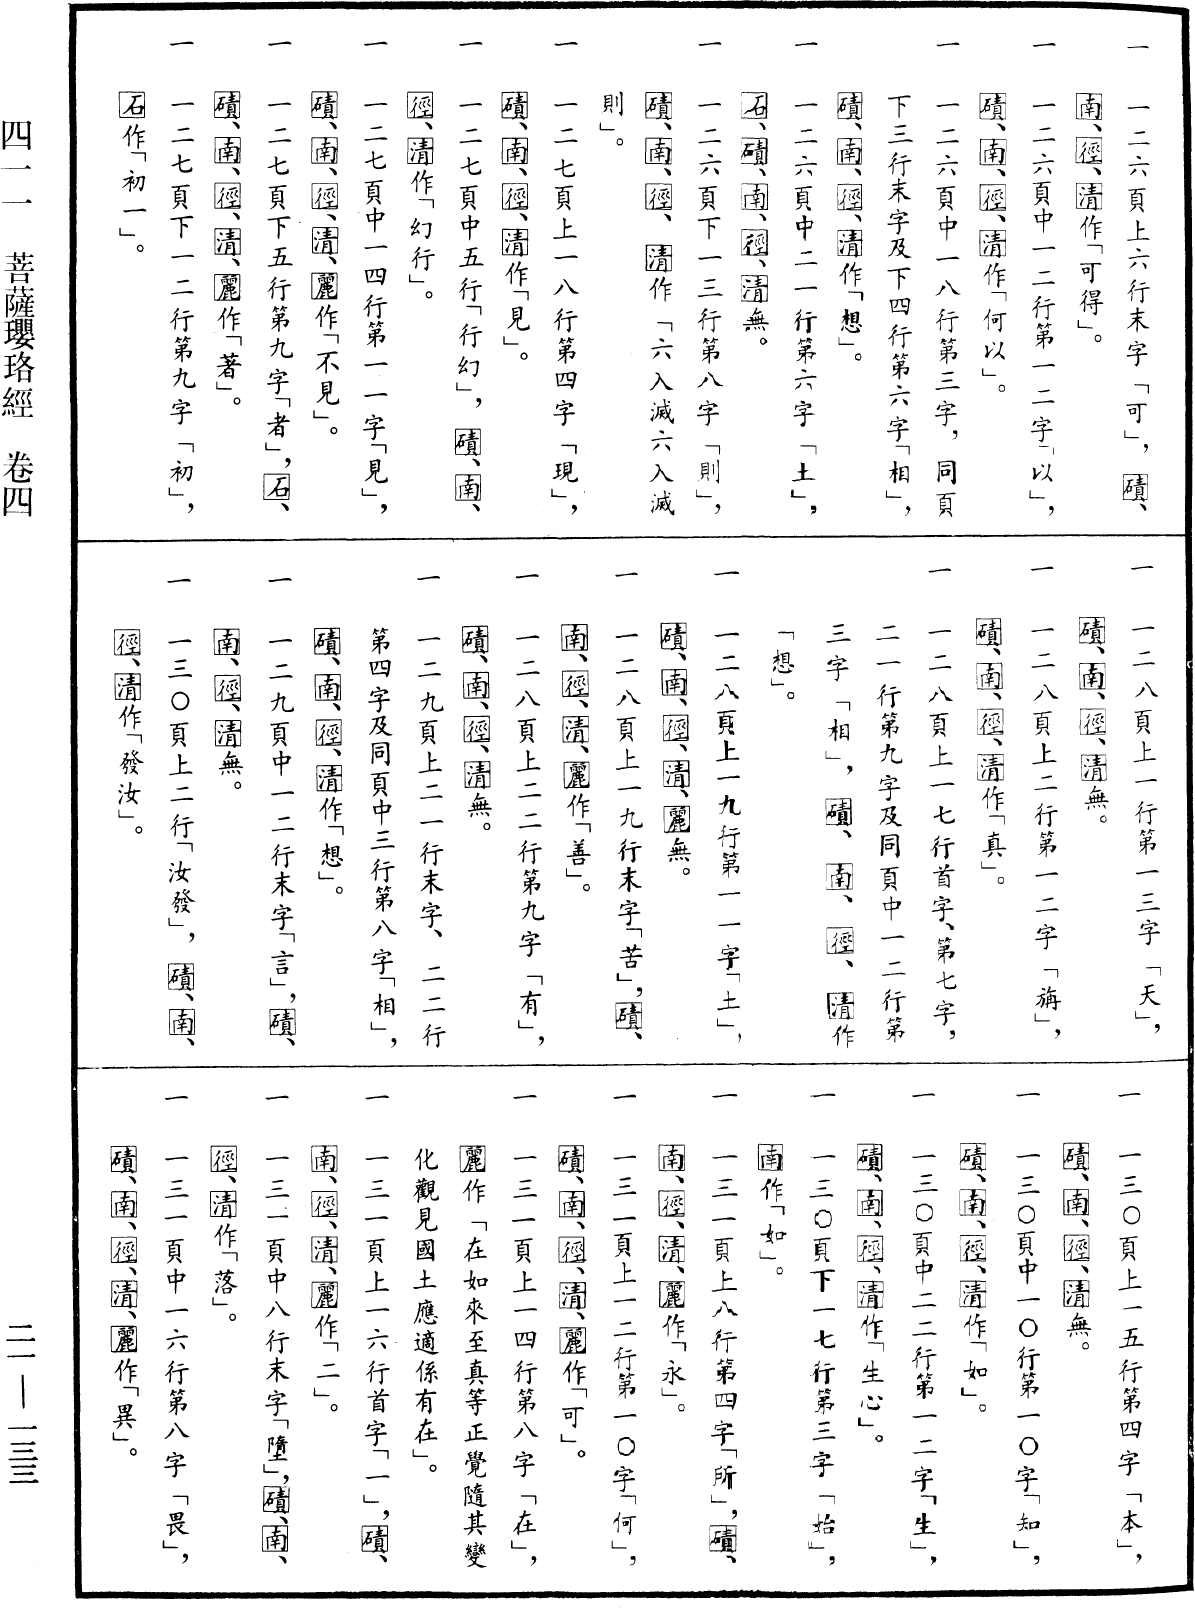 一　一二六頁上六行末字「可」，磧、
南、徑、清作「可得」。
一　一二六頁中一二行第一二字「以」，
磧、南、徑、清作「何以」。
一　一二六頁中一八行第三字，同頁
下三行末字及下四行第六字「相」，
磧、南、徑、清作「想」。
一　一二六頁中二一行第六字「土」，
石、磧、南、徑、清無。
一　一二六頁下一三行第八字「則」，
磧、南、徑、清作「六入滅六入滅
則」。
一　一二七頁上一八行第四字「現」，
磧、南、徑、清作「見」。
一　一二七頁中五行「行幻」，磧、南、
徑、清作「幻行」。
一　一二七頁中一四行第一一字「見」，
磧、南、徑、清、麗作「不見」。
一　一二七頁下五行第九字「者」，石、
磧、南、徑、清、麗作「著」。
一　一二七頁下一二行第九字「初」，
石作「初一」。
一　一二八頁上一行第一三字「天」，
磧、南、徑、清無。
一　一二八頁上二行第一二字「旃」，
磧、南、徑、清作「真」。
一　一二八頁上一七行首字、第七字，
二一行第九字及同頁中一二行第
三字「相」，磧、南、徑、清作
「想」。
一　一二八頁上一九行第一一字「土」，
磧、南、徑、清、麗無。
一　一二八頁上一九行末字「苦」，磧、
南、徑、清、麗作「善」。
一　一二八頁上二二行第九字「有」，
磧、南、徑、清無。
一　一二九頁上二一行末字、二二行
第四字及同頁中三行第八字「相」，
磧、南、徑、清作「想」。
一　一二九頁中一二行末字「言」，磧、
南、徑、清無。
一　一三〇頁上二行「汝發」，磧、南、
徑、清作「發汝」。
一　一三〇頁上一五行第四字「本」，
磧、南、徑、清無。
一　一三〇頁中一〇行第一〇字「知」，
磧、南、徑、清作「如」。
一　一三〇頁中二二行第一二字「生」，
磧、南、徑、清作「生心」。
一　一三〇頁下一七行第三字「始」，
南作「如」。
一　一三一頁上八行第四字「所」，磧、
南、徑、清、麗作「永」。
一　一三一頁上一二行第一〇字「何」，
磧、南、徑、清、麗作「可」。
一　一三一頁上一四行第八字「在」，
麗作「在如來至真等正覺隨其變
化觀見國土應適係有在」。
一　一三一頁上一六行首字「一」，磧、
南、徑、清、麗作「二」。
一　一三一頁中八行末字「墮」，磧、南、
徑、清作「落」。
一　一三一頁中一六行第八字「畏」，
磧、南、徑、清、麗作「異」。
四一一　菩薩瓔珞經　卷四
二一—一三三